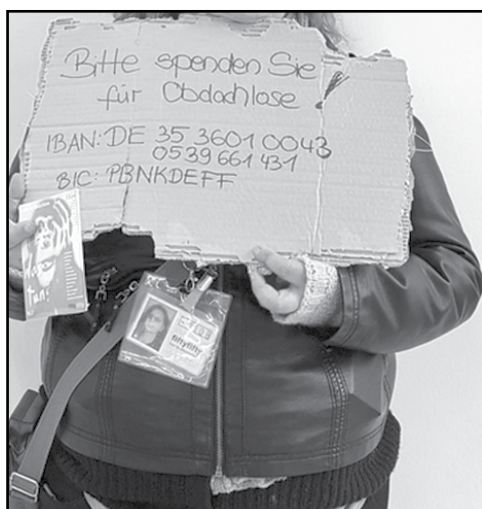 Bitte spenden Sie
für Obdachlose!
IBAN: DE 35 3601 0043
0539 661 431
BIC: PBNKDEFF
fiftyfifty